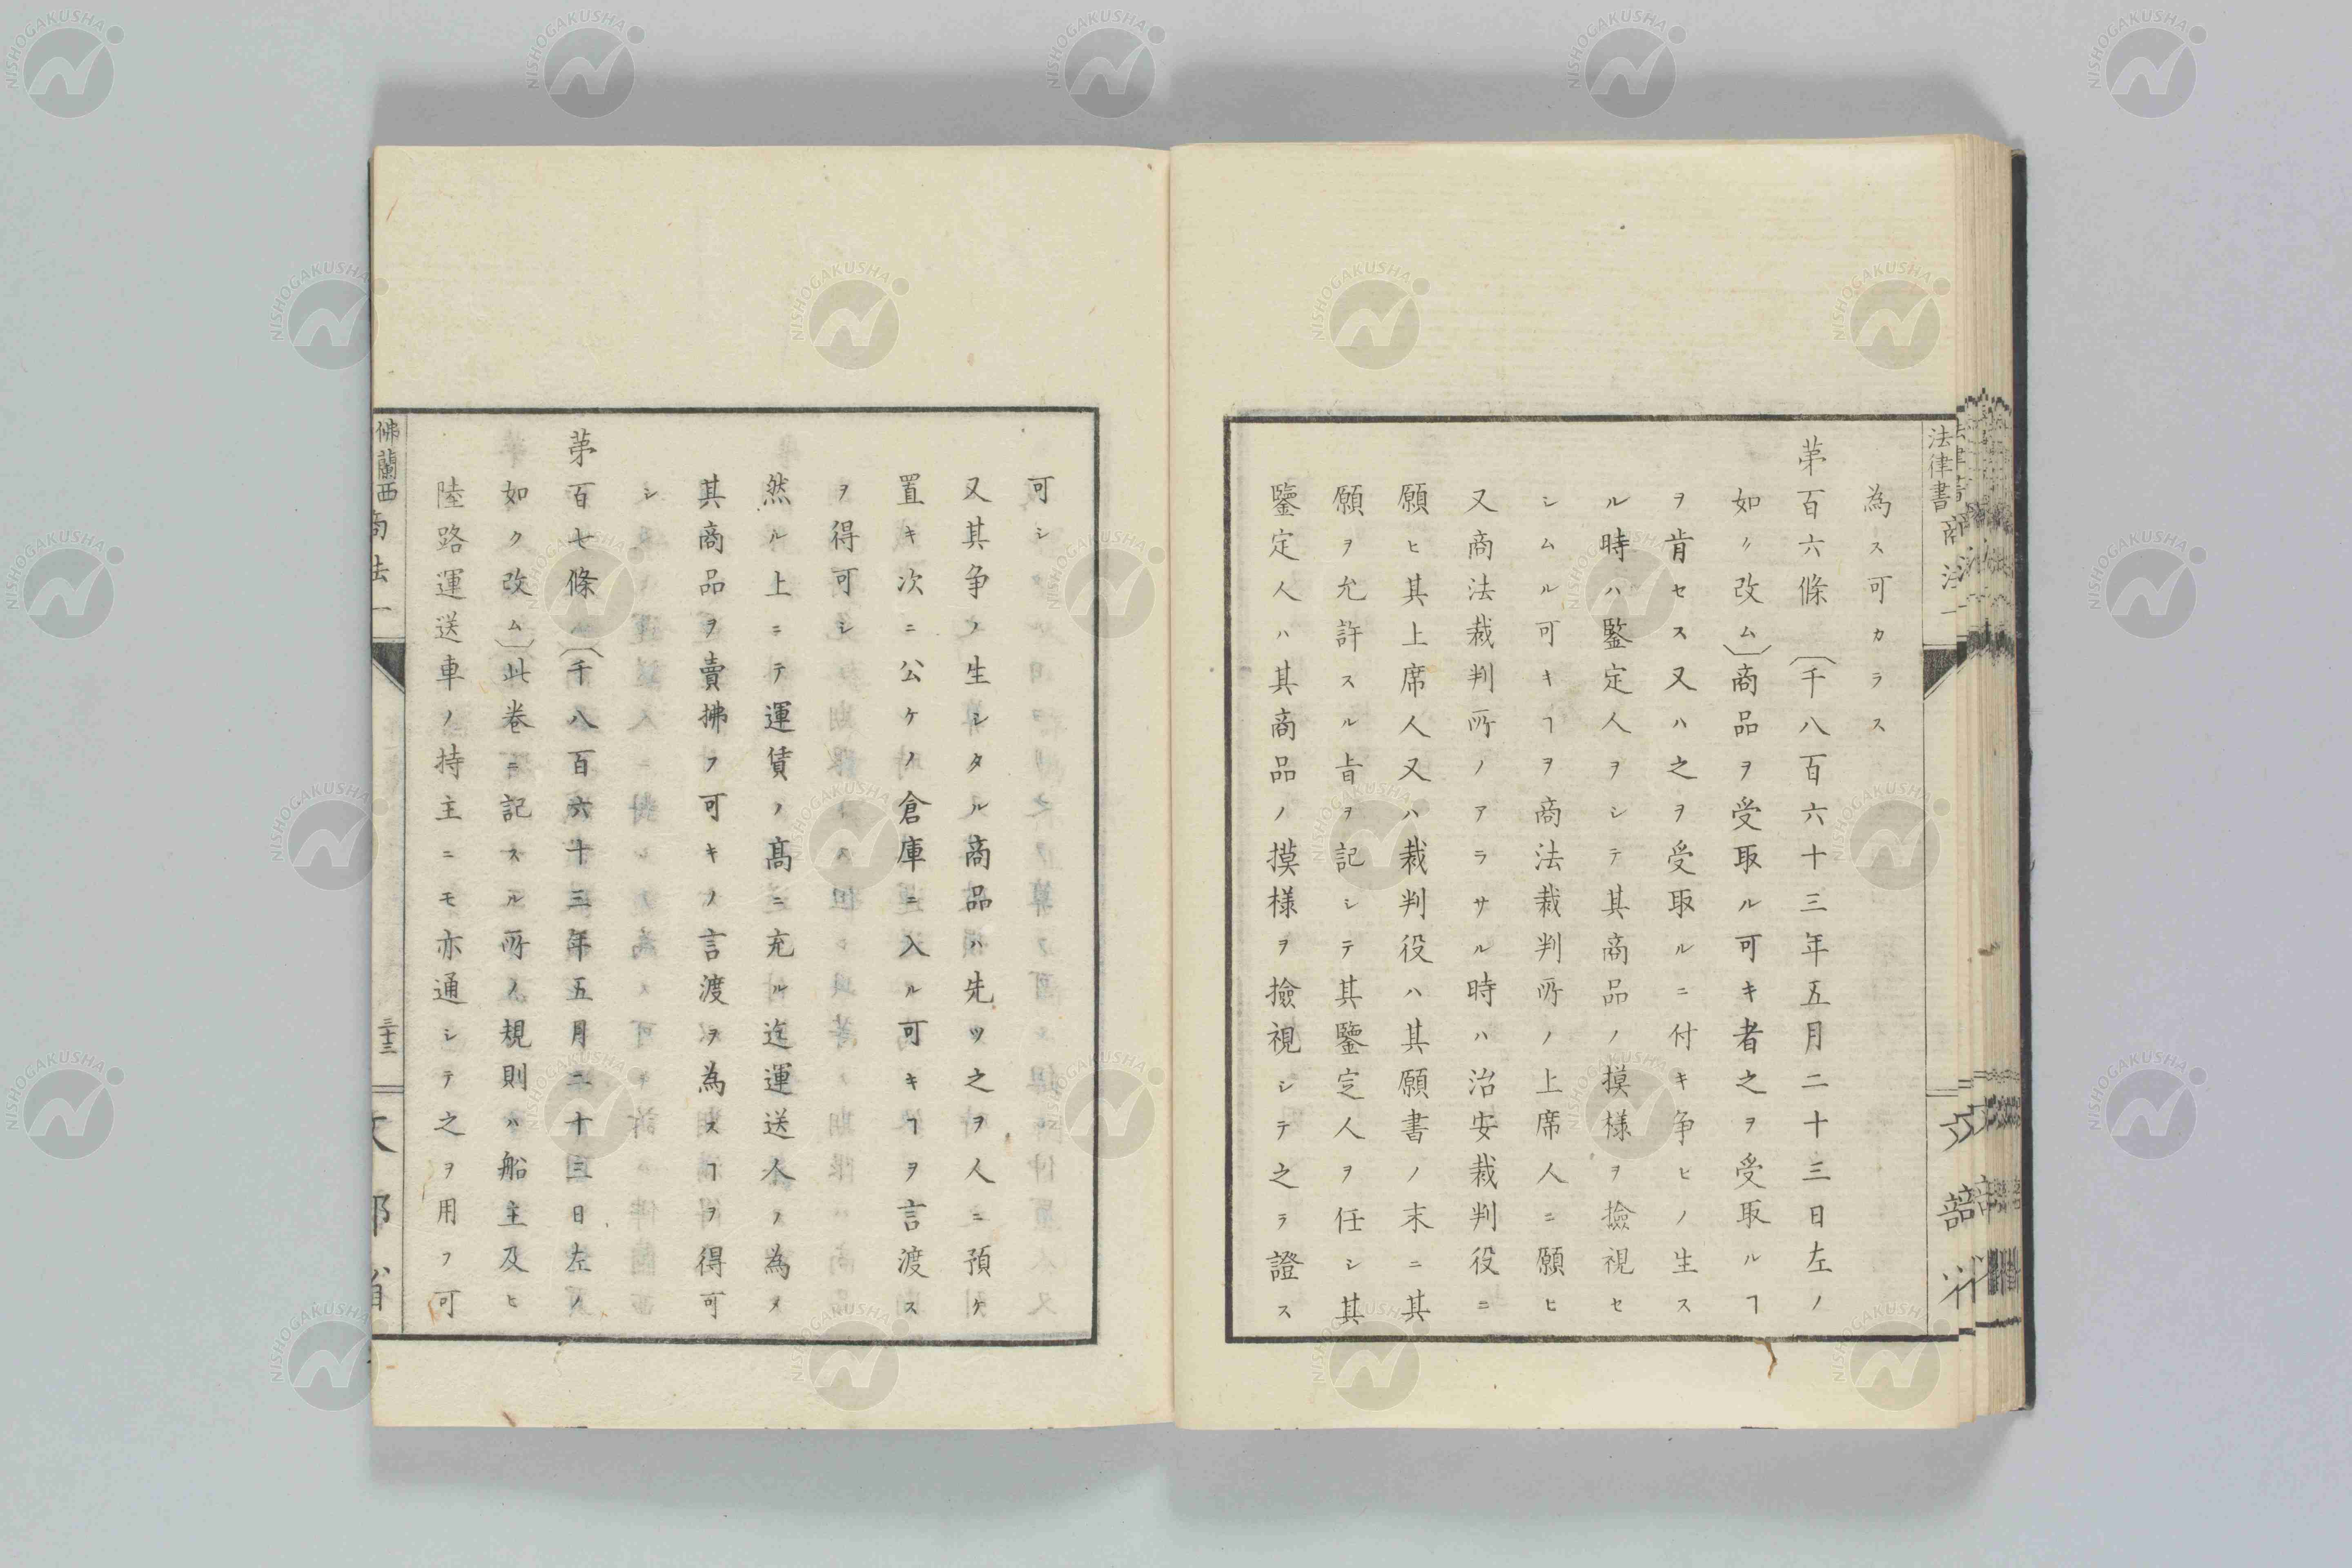 為ス可カラス
第百六條〔千八百六十三年五月二十三日左ノ
如ク改ム〕商品ヲ受取ル可キ者之ヲ受取ルヿ
ヲ肯セス又ハ之ヲ受取ルニ付キ争ヒノ生ス
ル時ハ鑒定人ヲシテ其商品ノ摸様ヲ撿視セ
シムル可キヿヲ商法裁判所ノ上席人ニ願ヒ
又商法裁判所ノアラサル時ハ治安裁判役ニ
願ヒ其上席人又ハ裁判役ハ其願書ノ末ニ其
願ヲ允許スル旨ヲ記シテ其鑒定人ヲ任シ其
鑒定人ハ其商品ノ摸様ヲ撿視シテ之ヲ證ス
法律書 商法一
可シ
又其争ノ生シタル商品ハ先ツ之ヲ人ニ預ケ
置キ次ニ公ケノ倉庫ニ入ル可キヿヲ言渡ス
ヲ得可シ
然ル上ニテ運賃ノ髙ニ充ル迄運送人ノ為メ
其商品ヲ賣拂フ可キノ言渡ヲ為スヿヲ得可
シ
第百七條〔千八百六十三年五月二十三日左ノ
如ク改ム〕此卷ニ記スル所ノ規則ハ船主及ヒ
陸路運送車ノ持主ニモ亦通シテ之ヲ用フ可
佛蘭西商法一
三十三
文部省
NISHOGAKUSHA